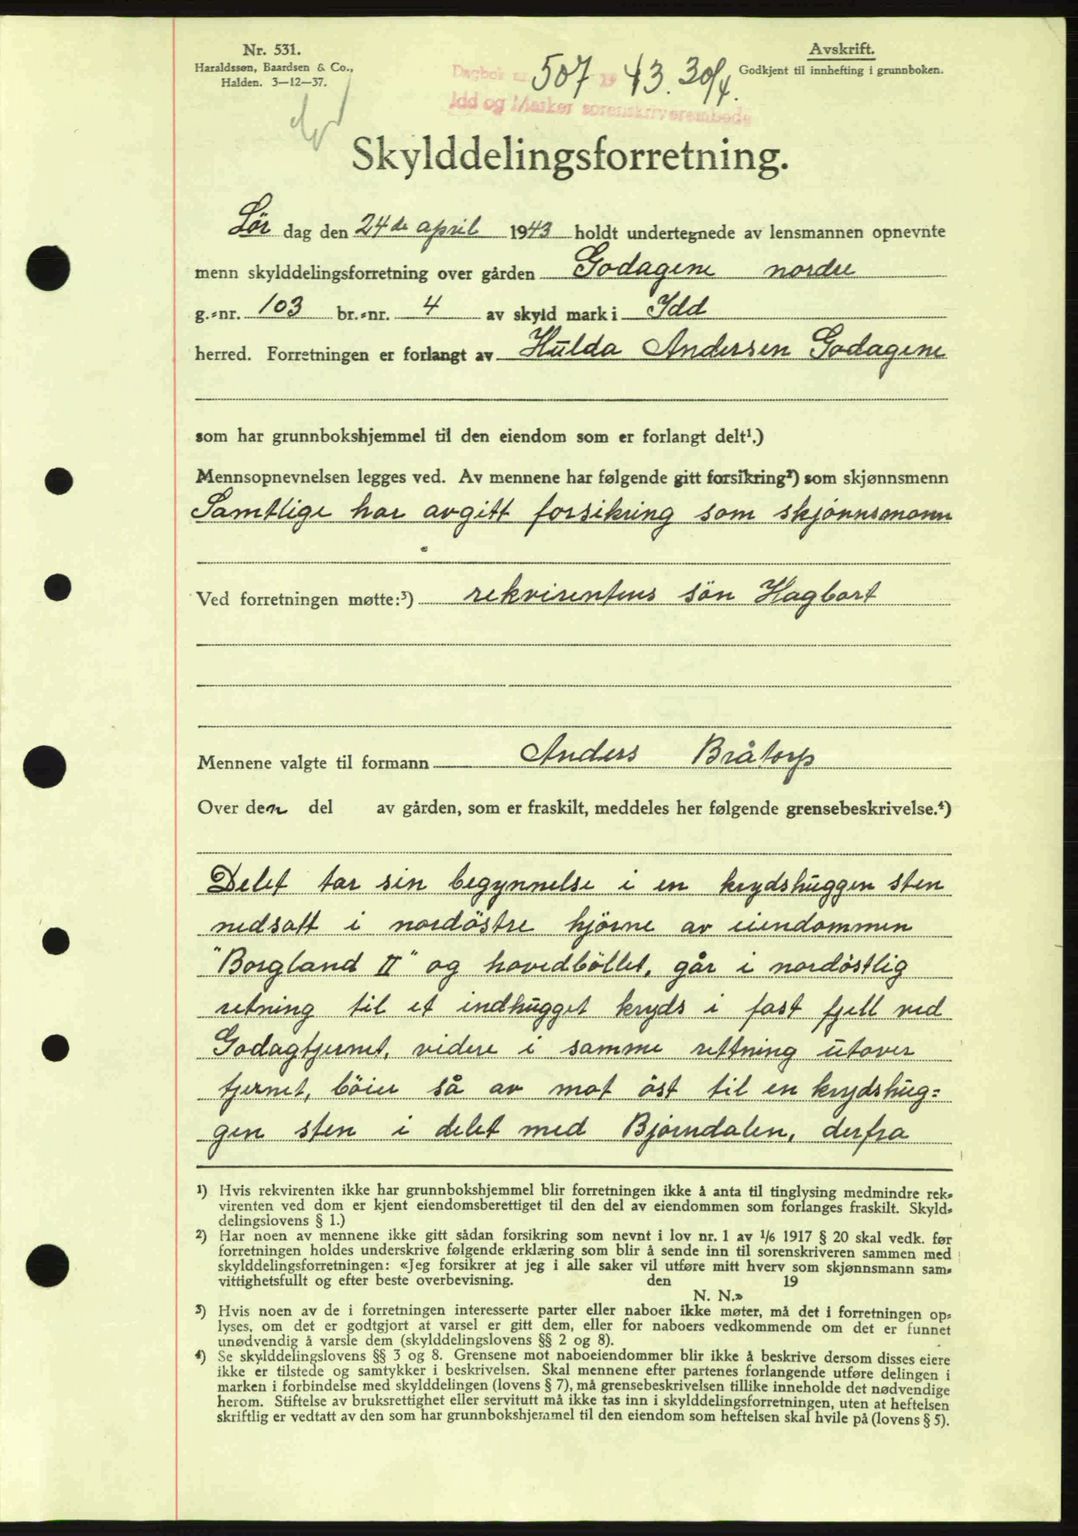 Nr. 531.
Haraldssøn, Baardsen & Co.,
Halden. 3—12—37.
Avskrift.
Godkjent til innhefting i grunnboken.
Dagbok nr. 507 19 43. 30/4.
Idd og Marker sorenskriverembede
Skylddelingsforretning.
Lör dag den 24de april 1943 holdt undertegnede av lensmannen opnevnte
menn skylddelingsforretning over gården Godagene nordre
g.-nr. 103 br.-nr. 4 av skyld mark i Idd
herred. Forretningen er forlangt av Hulda Andersen Godagene
som har grunnbokshjemmel til den eiendom som er forlangt delt¹.)
Mennsopnevnelsen legges ved. Av mennene har følgende gitt forsikring²) som skjønnsmenn
Samtlige har avgitt forsikring som skjönnsmann
Ved forretningen møtte:³) rekvirentens sön Hagbart
Mennene valgte til formann Anders Bråtorp
Over den del av gården, som er fraskilt, meddeles her følgende grensebeskrivelse.⁴)
Delet tar sin begynnelse i en krydshuggen sten
nedsatt i nordöstre hjörne av eiendommen
"Borgland II" og hovedböllet, går i nordöstlig
retning til et indhugget kryds i fast fjell ved
Godagtjernet, videre i samme rettning utover
tjernet, böier så av mot öst til en krydshug=
gen sten i delet med Björndalen, derfra
¹) Hvis rekvirenten ikke har grunnbokshjemmel blir forretningen ikke å anta til tinglysing medmindre rek-
virenten ved dom er kjent eiendomsberettiget til den del av eiendommen som forlanges fraskilt. Skyld-
delingslovens § 1.)
²) Har noen av mennene ikke gitt sådan forsikring som nevnt i lov nr. 1 av 1/6 1917 § 20 skal vedk. før
forretningen holdes underskrive følgende erklæring som blir å sende inn til sorenskriveren sammen med
skylddelingsforretningen: «Jeg forsikrer at jeg i alle saker vil utføre mitt hverv som skjønnsmann sam-
vittighetsfullt og efter beste overbevisning. den 19
N. N.»
³) Hvis noen av de i forretningen interesserte parter eller naboer ikke møter, må det i forretningen op-
lyses, om det er godtgjort at varsel er gitt dem, eller for naboers vedkommende om det er funnet
unødvendig å varsle dem (skylddelingslovens §§ 2 og 8).
⁴) Se skylddelingslovens §§ 3 og 8. Grensene mot naboeiendommer blir ikke å beskrive dersom disses eiere
ikke er tilstede og samtykker i beskrivelsen. Skal mennene efter partenes forlangende utføre delingen i
marken i forbindelse med skylddelingen (lovens § 7), må grensebeskrivelsen tillike inneholde det nødvendige
herom. Stiftelse av bruksrettighet eller servitutt må ikke tas inn i skylddelingsforretningen, uten at heftelsen
skriftlig er vedtatt av den som har grunnbokshjemmel til den eiendom som heftelsen skal hvile på (lovens § 5).